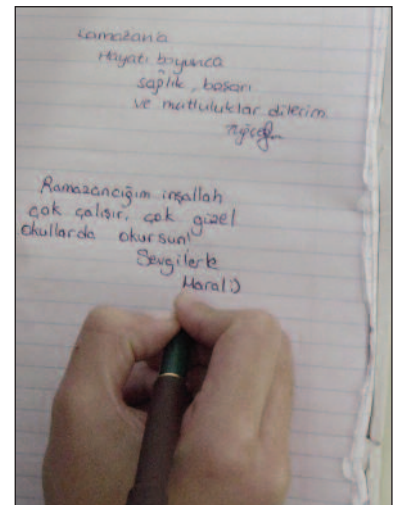 Ramazan'a
Hayatı boyunca
sağlık, başarı
ve mutluluklar dilerim
Ramazancığım inşallah
çok çalışır, çok güzel
okullarda okursun!
Sevgilerle
Maral:)